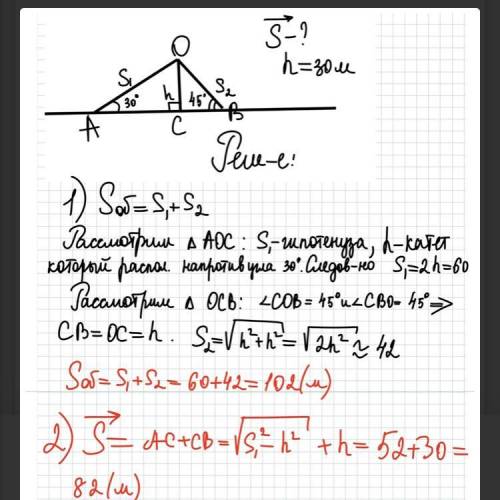 O
S⃗-?
h=30м
S₁
h
S₂
30°
45°
A
C
B
Реш-е:
1) Sоб=S₁+S₂
Рассмотрим △ AOC: S₁-гипотенуза, h-катет
который распол. напротив угла 30°. Следов-но S₁=2h=60
Рассмотрим △ OCB: ∠COB=45° и ∠CBO=45° ⇒
CB=OC=h. S₂=√(h²+h²)=√(2h²)≈42
Sоб=S₁+S₂=60+42=102(м)
2) S⃗= AC+CB=√(S₁²-h²)+h=52+30=
82(м)